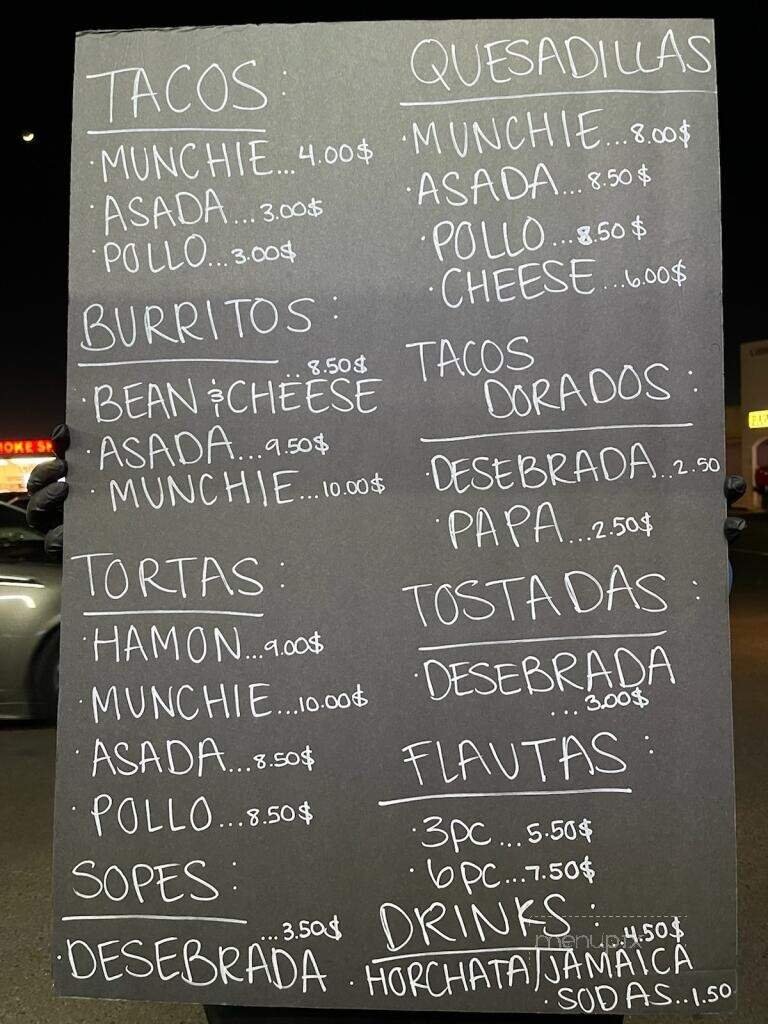 TACOS:
·MUNCHIE...4.00$
·ASADA...3.00$
·POLLO...3.00$
BURRITOS:
...8.50$
·BEAN & CHEESE
·ASADA...9.50$
·MUNCHIE...10.00$
TORTAS:
·HAMON...9.00$
·MUNCHIE...10.00$
·ASADA...8.50$
·POLLO...8.50$
SOPES:
...3.50$
·DESEBRADA
QUESADILLAS
·MUNCHIE...8.00$
·ASADA...8.50$
·POLLO...8.50$
·CHEESE...6.00$
TACOS
DORADOS:
·DESEBRADA...2.50
·PAPA...2.50$
TOSTADAS:
·DESEBRADA
...3.00$
FLAUTAS:
·3PC...5.50$
·6PC...7.50$
DRINKS:
..4.50$
·HORCHATA/JAMAICA
·SODAS..1.50
menupix